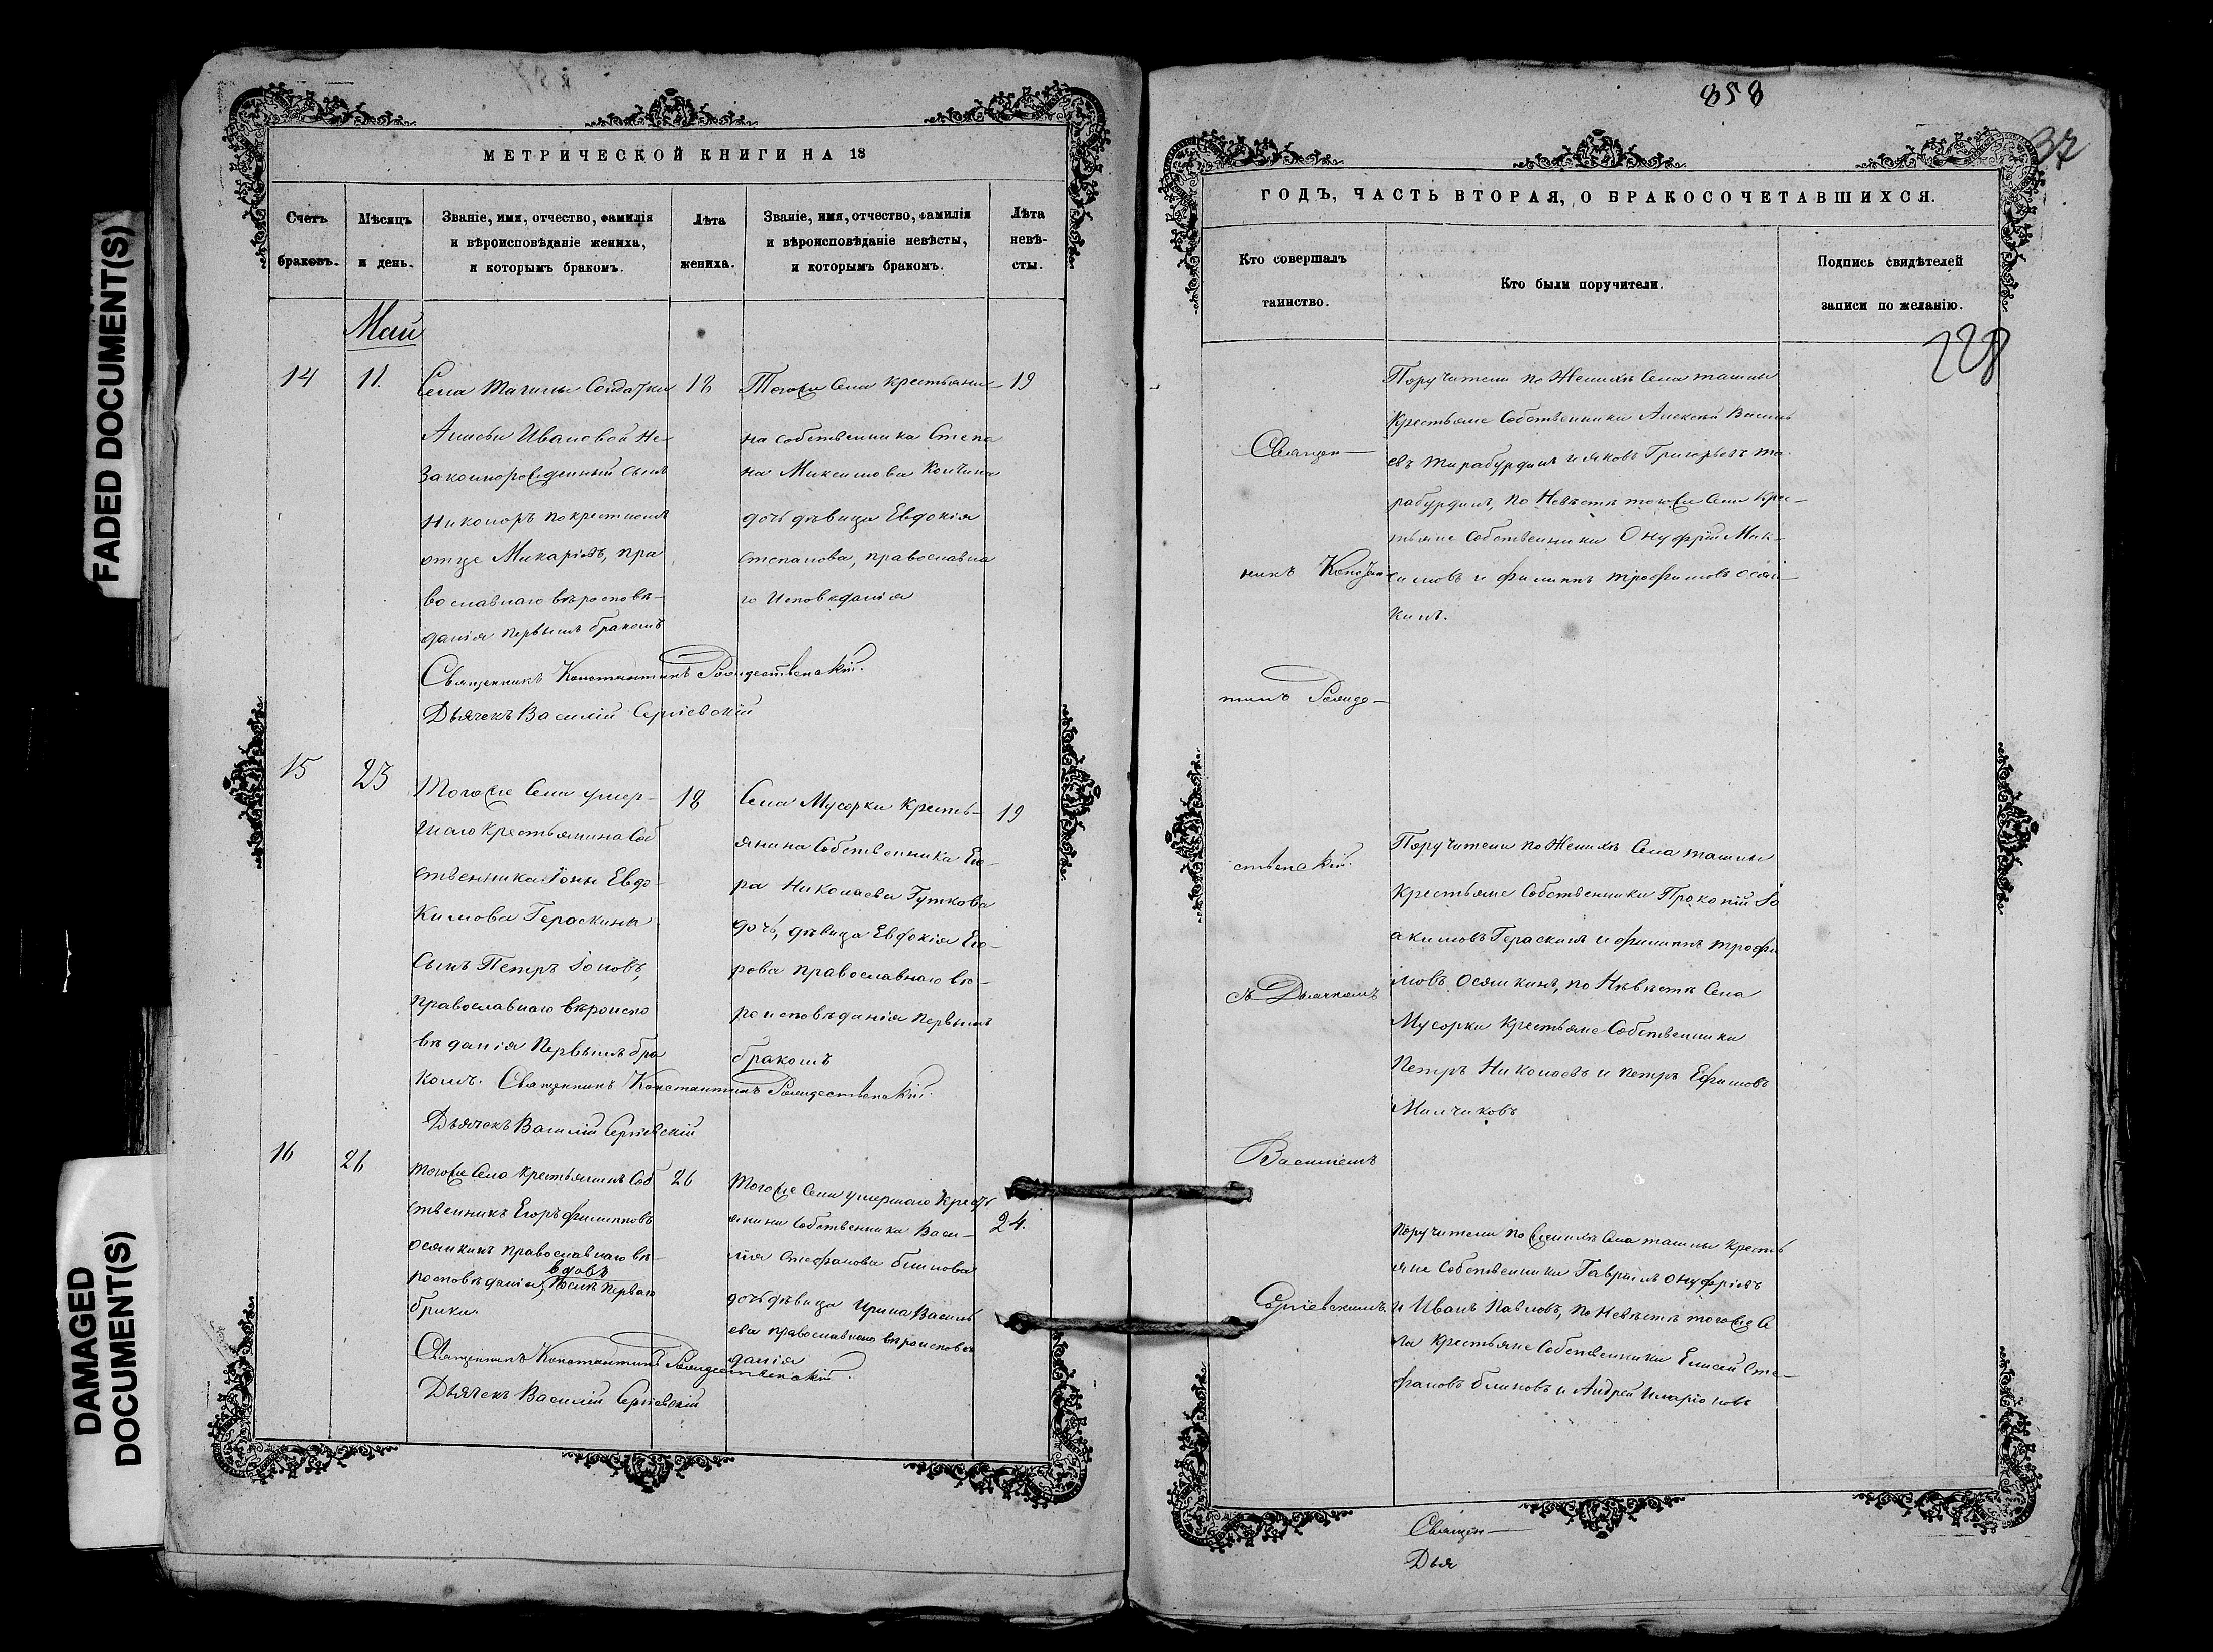 FADED DOCUMENT(S)
DAMAGED
DOCUMENT(S)
МЕТРИЧЕСКОЙ КНИГИ НА 18
Счетъ
браковъ.
Мѣсяцъ
и день.
Званіе, имя, отчество, фамилія
и вѣроисповѣданіе жениха,
и которымъ бракомъ.
Лѣта
жениха.
Званіе, имя, отчество, фамилія
и вѣроисповѣданіе невѣсты,
и которымъ бракомъ.
Лѣта
невѣ-
сты.
Май
14
11.
Села Ташлы Солдатки
Анисьи Ивановой не-
законнорожденный сынъ
Никоноръ по крестномъ
отце Макаріевъ, пра
вославнаго вѣроисповѣ-
данія первымъ бракомъ
18
Тогоже Села крестьяни-
на собственника Степа
на Максимова Колчина
дочь девица Евдокія
Степанова, православна
го исповеданія
19
Священникъ Константинъ Рождественскій.
Дьячекъ Василій Сергіевскій
15
23
Тогоже Села умер-
шаго крестьянина Соб
ственника Іоны Евдо-
кимова Гераскина
Сынъ Петръ Іоновъ,
православнаго вѣроиспо
вѣданія первымъ бра
комъ.
18
Села Мусорки кресть-
янина Собственника Его-
ра Николаева Гуткова
дочь, дѣвица Евдокія Его-
рова православнаго вѣ-
роисповѣданія первымъ
бракомъ
19
Священникъ Константинъ Рождественскій.
Дьячекъ Василій Сергіевскій
16
26
тогоже Села крестьянинъ Соб
ственникъ Егоръ Филипповъ
Осянкинъ православнаго вѣ-
роисповѣданія вдовъ послѣ перваго
брака.
26
тогоже Села умершаго крестъ
янина Собственника Васи-
лія Стефанова Блинова
дочь дѣвица Ирина Василь
ева православнаго вѣроисповѣ
данія
24.
Священникъ Константинъ Рождественскій.
Дьячекъ Василій Сергіевскій
858
37
ГОДЪ, ЧАСТЬ ВТОРАЯ, О БРАКОСОЧЕТАВШИХСЯ.
Кто совершалъ
таинство.
Кто были поручители.
Подпись свидѣтелей
записи по желанію.
228
Священ-
никъ Констан
тинъ Рожде-
ственскій.
съ Дьячкомъ
Василіемъ
Сергіевскимъ
Поручители по Женихѣ Села ташлы
Крестьяне Собственники Алексей Василь
евъ Тарабурдинъ и яковъ Григорьевъ та-
рабурдинъ, по Невѣстѣ тогоже Села Кре-
стьяне Собственники Онуфрій Мак-
симовъ и филиппъ трофимовъ осян-
кинъ.
Поручители по Женихѣ Села ташлы
Крестьяне Собственники Прокопій Іо
акимовъ Гераскинъ и филиппъ трофи
мовъ Осянкинъ, по Невѣстѣ Села
Мусорки крестьяне Собственники
Петръ Николаевъ и петръ Ефимовъ
Милчиковъ
поручители по женихѣ Села ташлы кресть
яне Собственники Гавріилъ Онуфріевъ
и Иванъ Павловъ, по Невѣстѣ тогоже Се
ла крестьяне Собственники Елисей Сте-
фановъ блиновъ и Андрей Иларіоновъ
Священ-
Дья